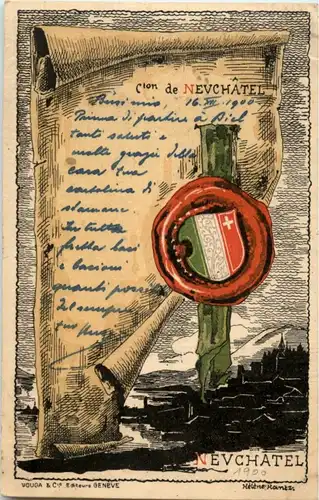 Cton de NEVCHÂTEL
16. VII 1900
Prima di partire a Biel
tanti saluti e
molte grazie della
cara tua
cartolina di
stamane.
In tutta
fretta baci
e bacioni
quanti
il sempre
tuo
NEVCHÂTEL
1900
VOUGA & Cie Editeurs GENÈVE
Hélène Hantz.